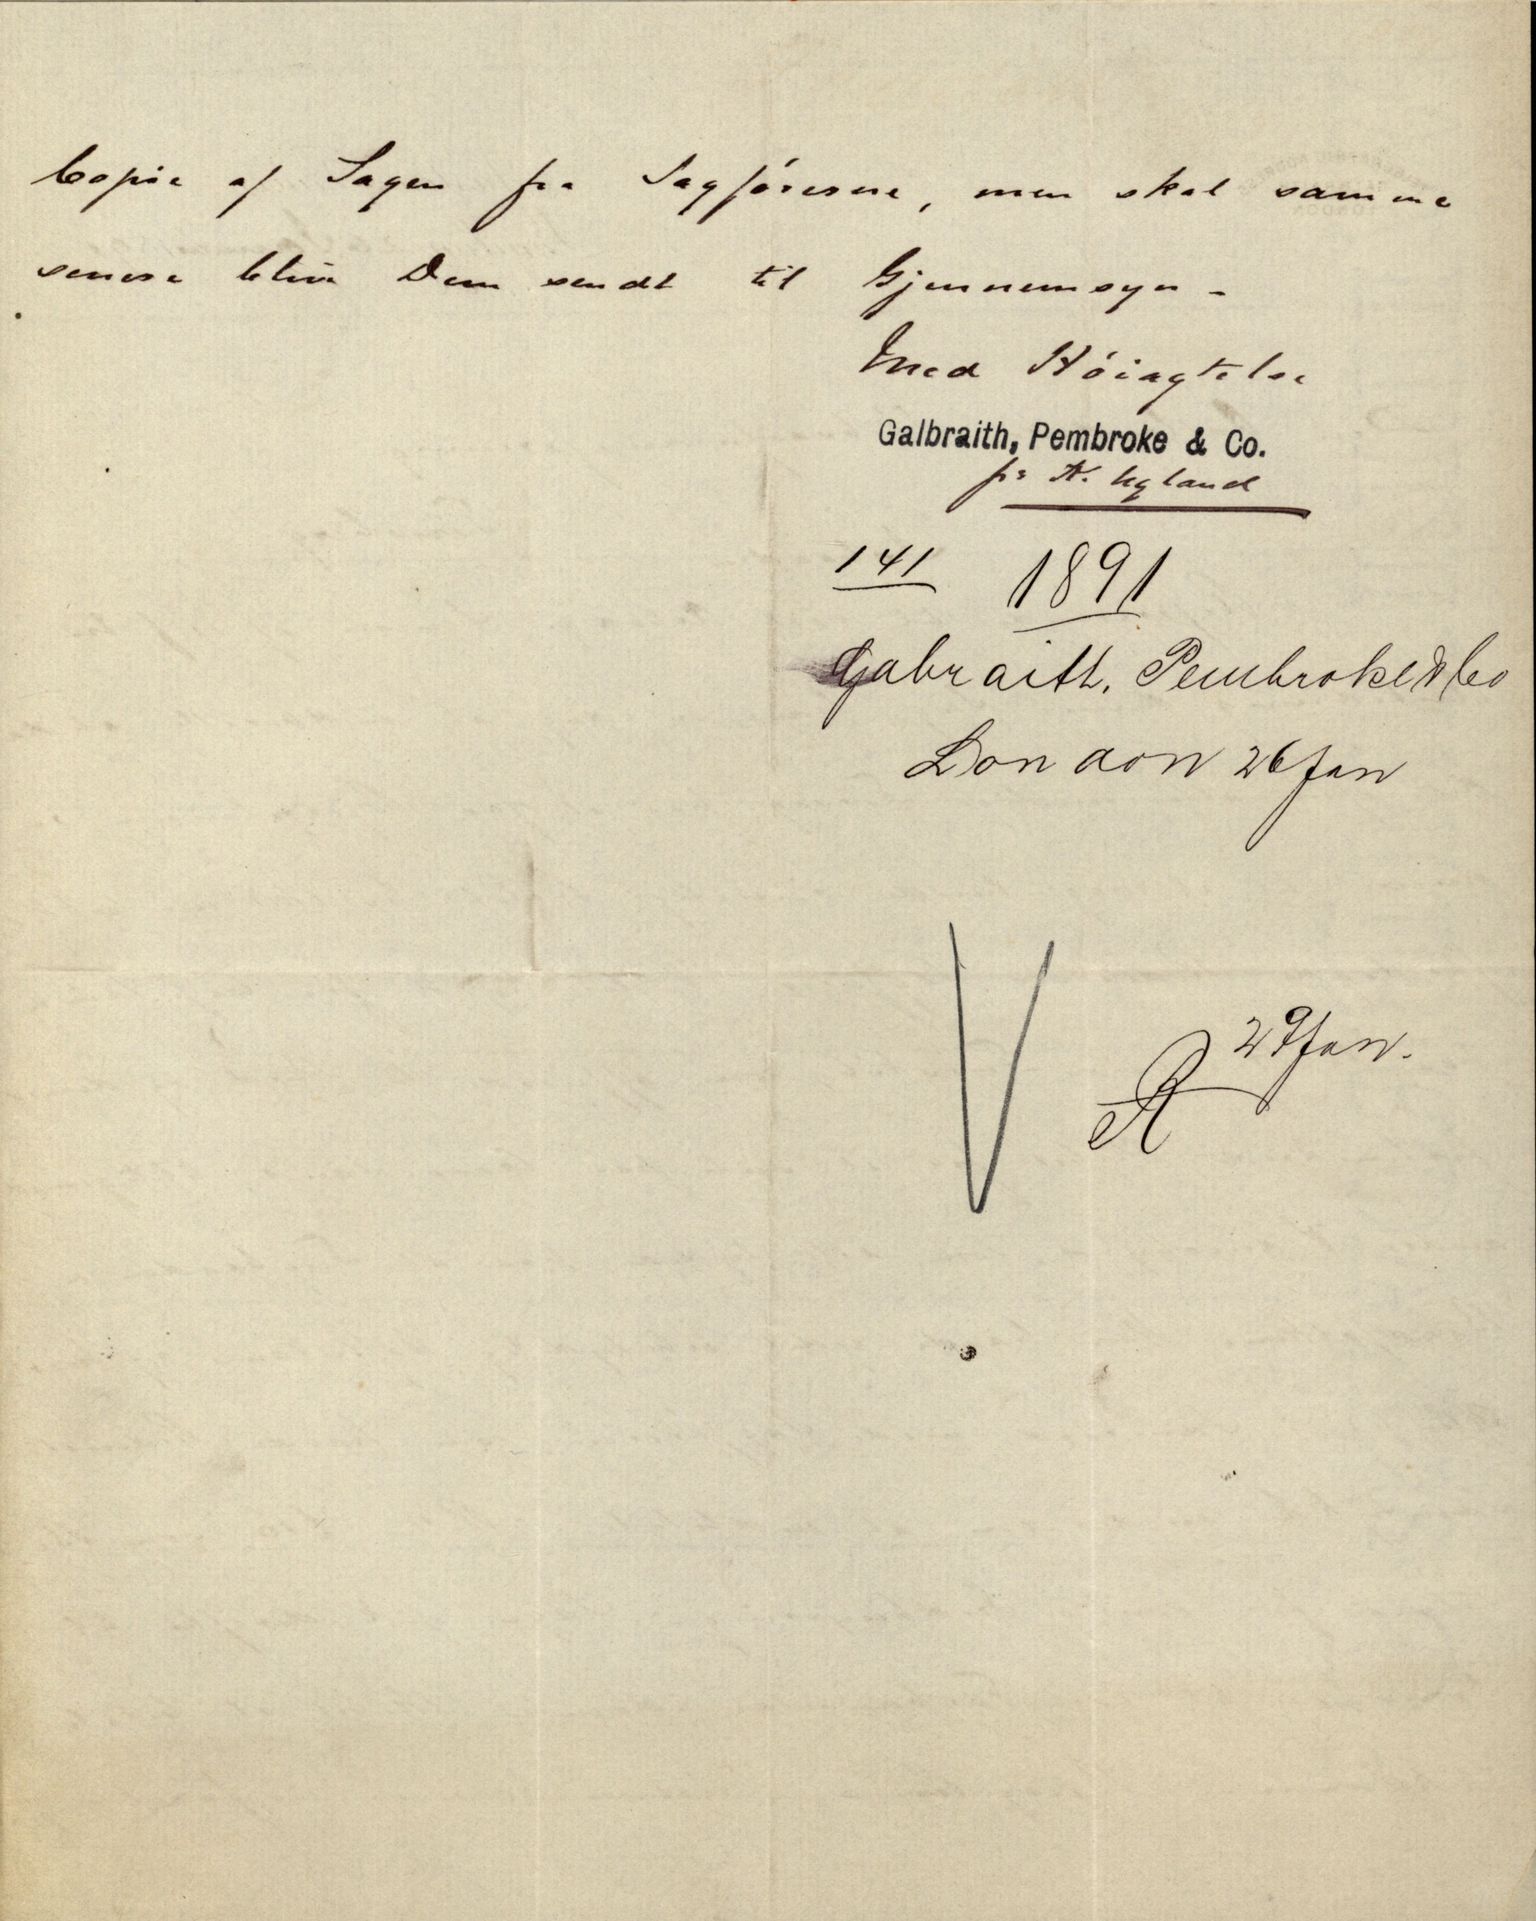 Copie af Sagen fra Sagførerne, men skal samme
senere blive Dem sendt til Gjennemsyn -
Med Høiagtelse
Galbraith, Pembroke & Co.
pr N. Ugland
141 1891
Gabraith, Pembroke & Co
London 26 Jan
29 Jan.
R